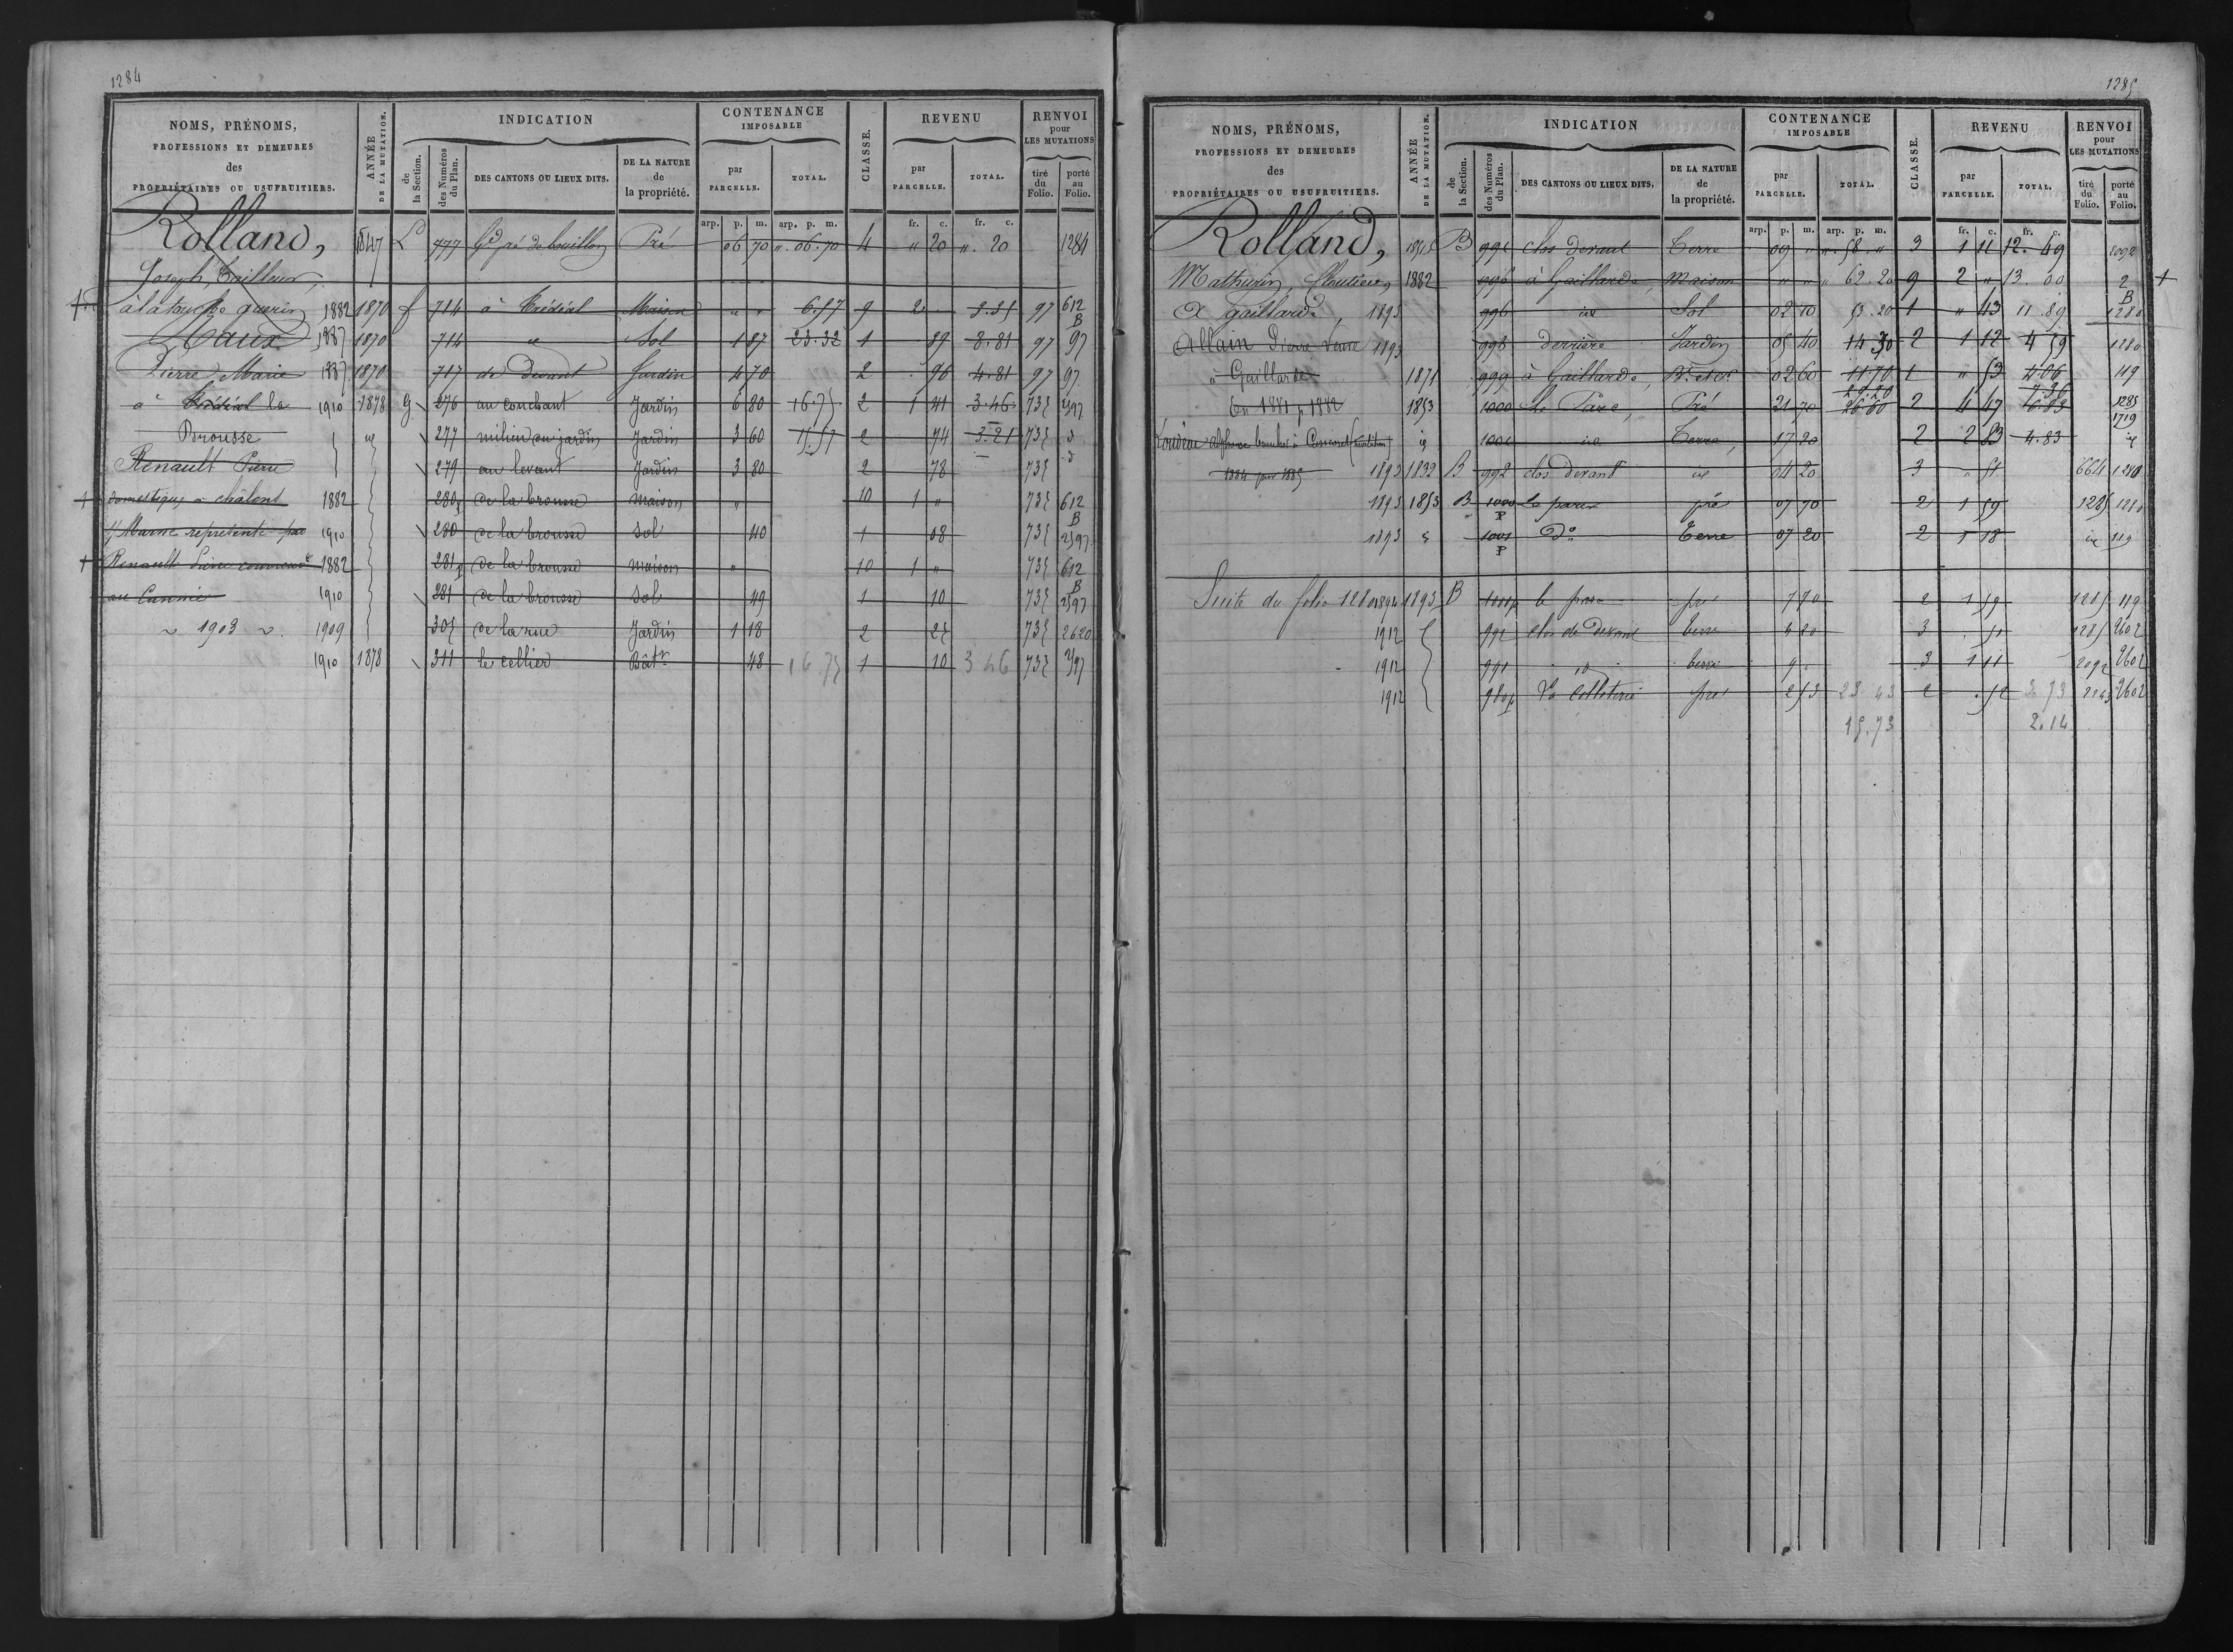 1284
NOMS, PRÉNOMS, PROFESSIONS ET DEMEURES des PROPRIÉTAIRES OU USUFRUITIERS.
ANNÉE DE LA MUTATION.
INDICATION
de la Section.
des Numéros du Plan.
DES CANTONS OU LIEUX DITS.
DE LA NATURE de la propriété.
CONTENANCE IMPOSABLE
par PARCELLE.
TOTAL.
CLASSE.
REVENU
par PARCELLE.
TOTAL.
RENVOI pour LES MUTATIONS
tiré du Folio.
porté au Folio.
arp. p. m. arp. p. m. fr. c. fr. c.
Rolland, 1847 L 777 Gd pré de bouillon Pré 06 70 " 06. 70 4 " 20 ". 20 1284
Joseph, Tailleur,
à la touche guerin 1882 1870 f 714 à Trédéal Maison " " 6.57 9 2 " 97 612 B
Maux 1887 1870 714 " Sol 1 87 23.32 1 39 8.81 97 97
Pierre Marie 1887 1870 717 de devant Jardin 4 70 2 96 4.81 97 97
à Trédéal la 1910 1878 G 276 au couchant Jardin 6 80 16.75 2 1 41 3.46 735 2597
Brousse id 277 milieu du jardin Jardin 3 60 2 74 3.21 735 d
Renault Pierre 279 au levant Jardin 3 80 2 78 735 d
domestique à châlons 1882 280p de la brousse maison " 10 1 " 735 612 B
s/ Marne représenté par 1910 280 de la brousse sol 40 1 08 735 2597
Renault Pierre couvreur 1882 281p de la brousse maison " 10 1 " 735 612 B
1910 281 de la brousse sol 49 1 10 735 2597
~ 1903 ~ 1909 305 de la rue Jardin 1 18 2 25 735 2620
1910 1878 311 le cellier Bâtt 48 16 75 1 10 3 46 735 2597
1285
NOMS, PRÉNOMS, PROFESSIONS ET DEMEURES des PROPRIÉTAIRES OU USUFRUITIERS.
ANNÉE DE LA MUTATION.
INDICATION
de la Section.
des Numéros du Plan.
DES CANTONS OU LIEUX DITS.
DE LA NATURE de la propriété.
CONTENANCE IMPOSABLE
par PARCELLE.
TOTAL.
CLASSE.
REVENU
par PARCELLE.
TOTAL.
RENVOI pour LES MUTATIONS
tiré du Folio.
porté au Folio.
arp. p. m. arp. p. m. fr. c. fr. c.
Rolland, 1845 B 991 clos devant Terre 09 " " 58. " 3 1 11 12. 49 2092
Mathurin, 1882 996 à Gaillarde, maison " " " 62. 20 9 2 " 13. 00 2 B
à gaillarde, 1893 996 id Sol 02 10 53.20 1 " 43 11.89 1280
Allain Pierre veuve 1893 998 derrière Jardin 05 40 14 30 2 1 12 4 59 1280
à Gaillarde 1871 999 à Gaillarde, 02 60 11 70 1 " 53 4 06 119
En 1881 p 1882 1853 1000 Le Parc, Pré 21 70 29.20 26.00 2 4 47 1285 1719
id 1001 id Terre, 17 20 2 2 83 4.83 id
1884 pour 1885 1893 1832 B 992 clos devant id 04 20 3 " 51 664 1280
1893 1853 B 1000 P le parc pré 07 70 2 1 59 1285 1280
1893 1001 P do Terre 07 20 2 1 18 id 119
Suite du folio 1280 1894 1893 B 1000p le parc pré 7 70 2 1 59 1285 119
1912 992 clos de devant terre 4 20 3 . 51 1285 2602
1912 991 id terre 9 . 3 1 11 2092 2602
1912 980p La Colleterie pré 2 53 23 43 2 . 52 3 73 2143 2602
15.73 2.14